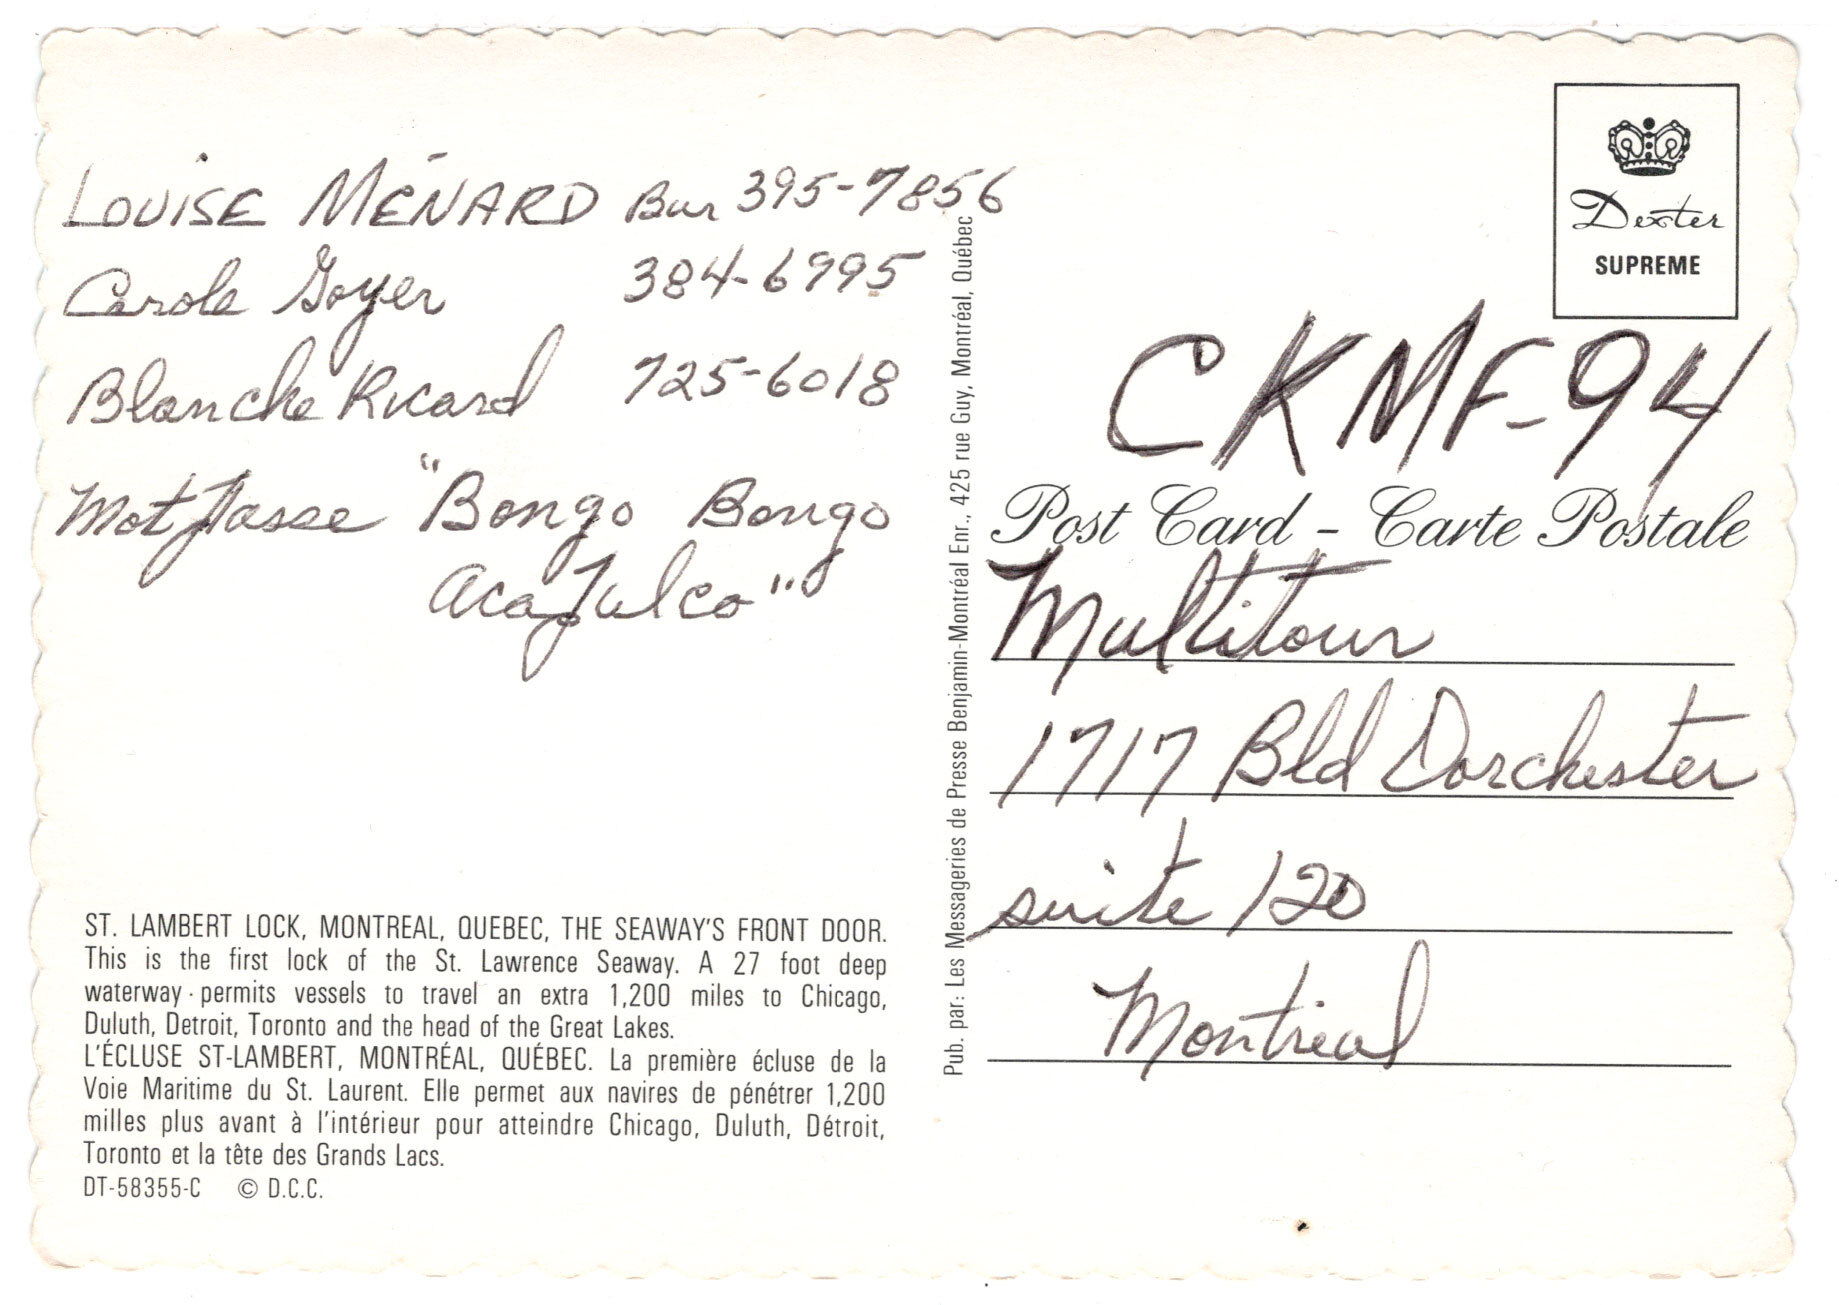 LOUISE MÉNARD Bur 395-7856
Carole Goyer 384-6995
Blanche Ricard 725-6018
Mot passe "Bongo Bongo
Acapulco"
ST. LAMBERT LOCK, MONTREAL, QUEBEC, THE SEAWAY'S FRONT DOOR.
This is the first lock of the St. Lawrence Seaway. A 27 foot deep
waterway permits vessels to travel an extra 1,200 miles to Chicago,
Duluth, Detroit, Toronto and the head of the Great Lakes.
L'ÉCLUSE ST-LAMBERT, MONTRÉAL, QUÉBEC. La première écluse de la
Voie Maritime du St. Laurent. Elle permet aux navires de pénétrer 1,200
milles plus avant à l'intérieur pour atteindre Chicago, Duluth, Détroit,
Toronto et la tête des Grands Lacs.
DT-58355-C © D.C.C.
Pub. par: Les Messageries de Presse Benjamin-Montréal Enr., 425 rue Guy, Montréal, Québec
Dexter
SUPREME
CKMF-94
Post Card - Carte Postale
Multitour
1717 Bld Dorchester
suite 120
Montreal